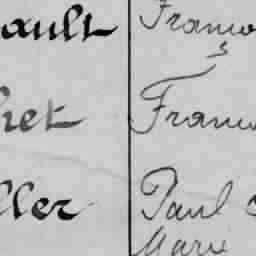 ault Franco
s
het Franco
ller Paul
Marie